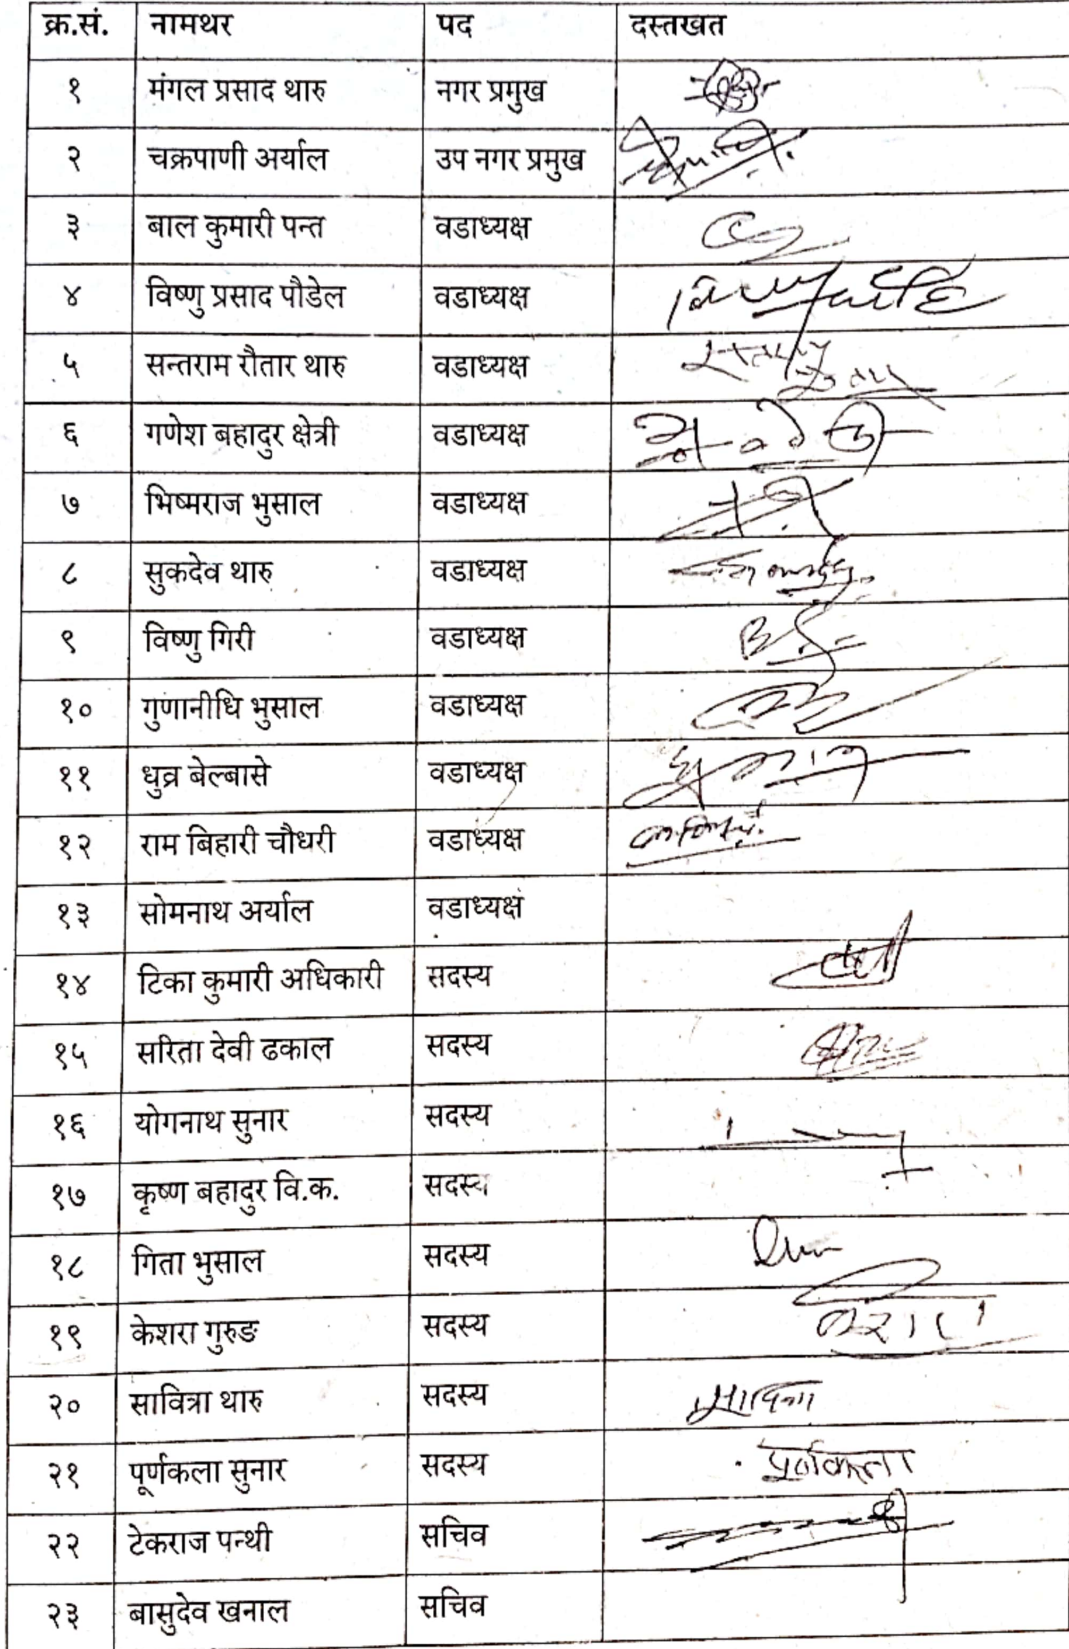 क्र.सं. नामथर पद दस्तखत
१ मंगल प्रसाद थारु नगर प्रमुख
२ चक्रपाणी अर्याल उप नगर प्रमुख
३ बाल कुमारी पन्त वडाध्यक्ष
४ विष्णु प्रसाद पौडेल वडाध्यक्ष
५ सन्तराम रौतार थारु वडाध्यक्ष
६ गणेश बहादुर क्षेत्री वडाध्यक्ष
७ भिष्मराज भुसाल वडाध्यक्ष
८ सुकदेव थारु वडाध्यक्ष
९ विष्णु गिरी वडाध्यक्ष
१० गुणानीधि भुसाल वडाध्यक्ष
११ धुव्र बेल्बासे वडाध्यक्ष
१२ राम बिहारी चौधरी वडाध्यक्ष
१३ सोमनाथ अर्याल वडाध्यक्ष
१४ टिका कुमारी अधिकारी सदस्य
१५ सरिता देवी ढकाल सदस्य
१६ योगनाथ सुनार सदस्य
१७ कृष्ण बहादुर वि.क. सदस्य
१८ गिता भुसाल सदस्य
१९ केशरा गुरुङ सदस्य
२० सावित्रा थारु सदस्य
२१ पूर्णकला सुनार सदस्य पूर्णकला
२२ टेकराज पन्थी सचिव
२३ बासुदेव खनाल सचिव